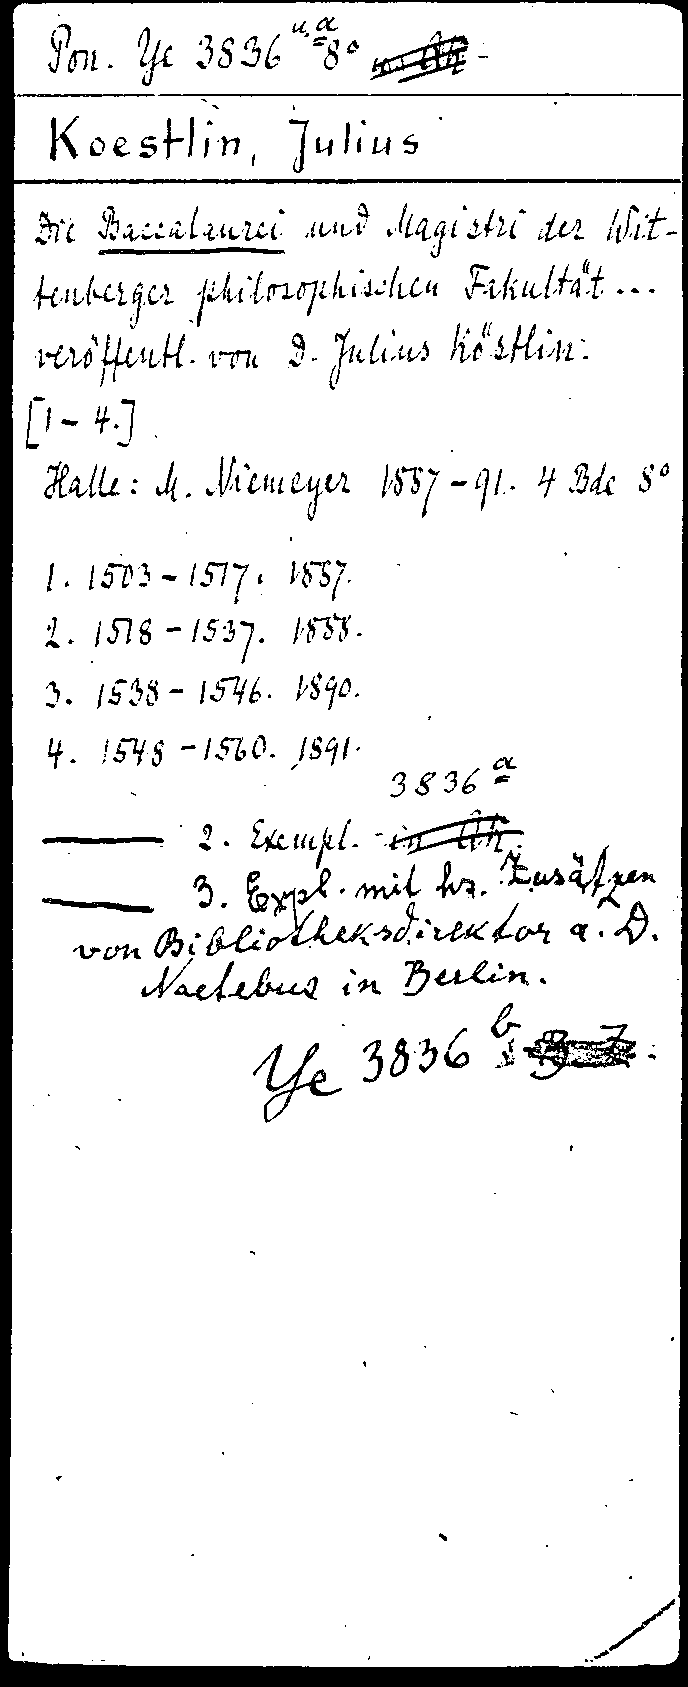 Pon. Ye 3836 u. a 8°
Koestlin, Julius
Die Baccalaurei und Magistri der Wit-
tenberger philosophischen Fakultät...
veröffentl. von D. Julius Köstlin.
[1-4.]
Halle: M. Niemeyer 1887-91. 4 Bde 8°
1. 1503-1517. 1887.
2. 1518-1537. 1888.
3. 1538-1546. 1890.
4. 1548-1560. 1891.
3836 a
—— 2. Exempl.
—— 3. Expl. mit hs. Zusätzen
von Bibliotheksdirektor a. D.
Naetebus in Berlin.
Ye 3836 b